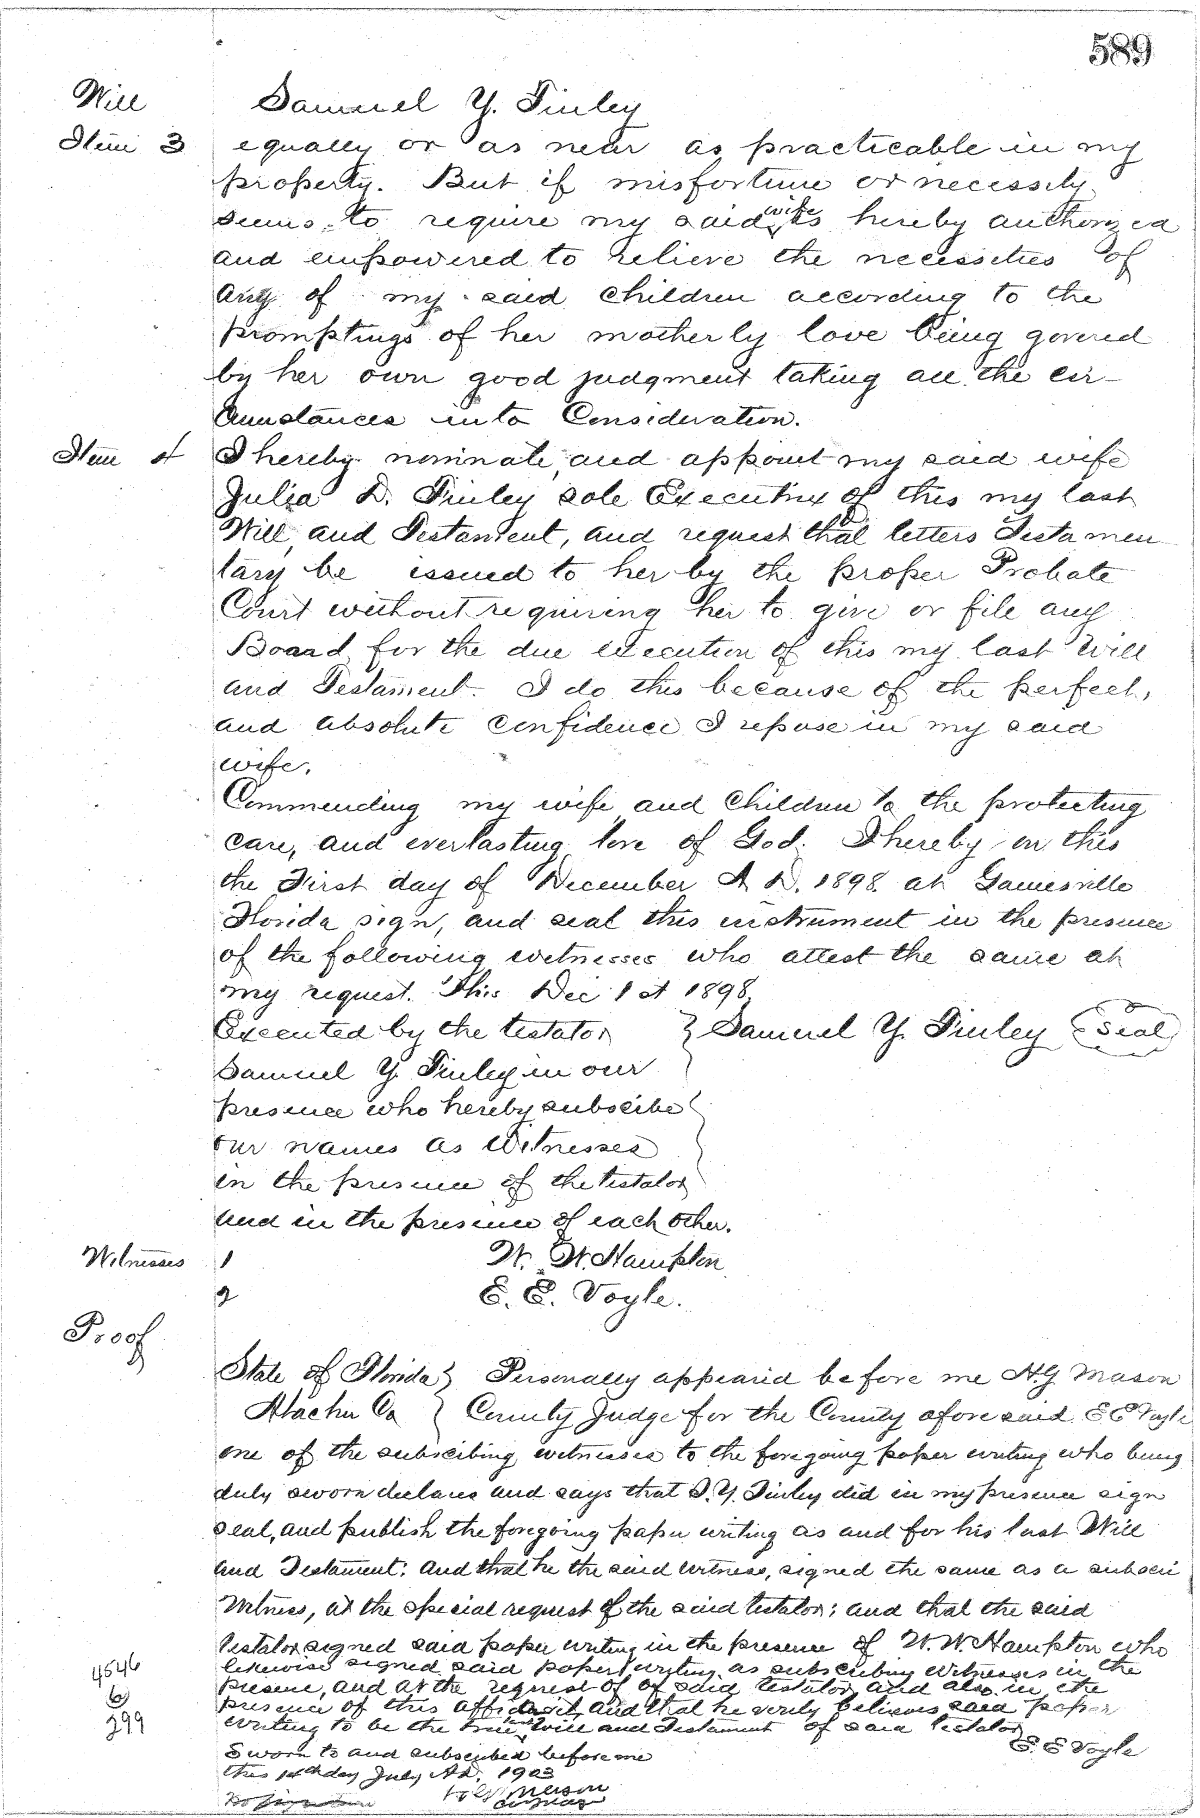 589
Will Samuel Y. Finley
Item 3 equally or as near as practicable in my
property. But if misfortune or necessity
seems to require my said wife is hereby authorized
and empowered to relieve the necessities of
any of my said children according to the
promptings of her motherly love being govered
by her own good judgment taking all the cir-
cumstances into Consideration.
Item 4 I hereby nominate, and appoint my said wife
Julia D. Finley sole Executrix of this my last
Will, and Testament, and request that letters Testamen
tary be issued to her by the proper Probate
Court without requiring her to give or file any
Board for the due execution of this my last Will
and Testament. I do this because of the perfect,
and absolute confidence I repose in my said
wife.
Commending my wife and children to the protecting
care, and everlasting love of God. I hereby on this
the First day of December A.D. 1898 at Gainesville
Florida sign, and seal this instrument in the presence
of the following witnesses who attest the same at
my request. This Dec 1st 1898
Executed by the testator } Samuel Y. Finley (Seal)
Samuel Y. Finley in our
presence who hereby subscibe
our names as Witnesses
in the presence of the testator
and in the presence of each other.
Witnesses 1 W. W. Hampton
2 E. E. Voyle.
Proof
State of Florida } Personally appeared before me H.G Mason
Alachu Co } County Judge for the County aforesaid E E Voyle
one of the subscibing witnesses to the foregoing paper writing who being
duly sworn declares and says that S.Y. Finley did in my presence sign
seal, and publish the foregoing paper writing as and for his last Will
and Testament: and that he the said witness, signed the same as a subscri
Witness, at the special request of the said testator; and that the said
testator signed said paper writing in the presence of W. W. Hampton who
likewise signed said paper writing as subscribing witnesses in the
presence, and at the request of of said testator and also in the
presence of this affidavit, and that he verily believes said paper
writing to be the true last Will and Testament of said Testator
4546
6
299
E. E Voyle
Sworn to and subscribed before me
this 14th day July A.D. 1903